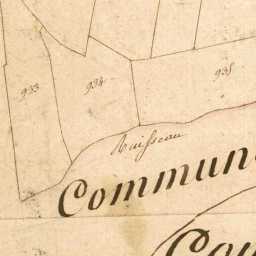 933
934
935
Ruisseau
Commun
Cou